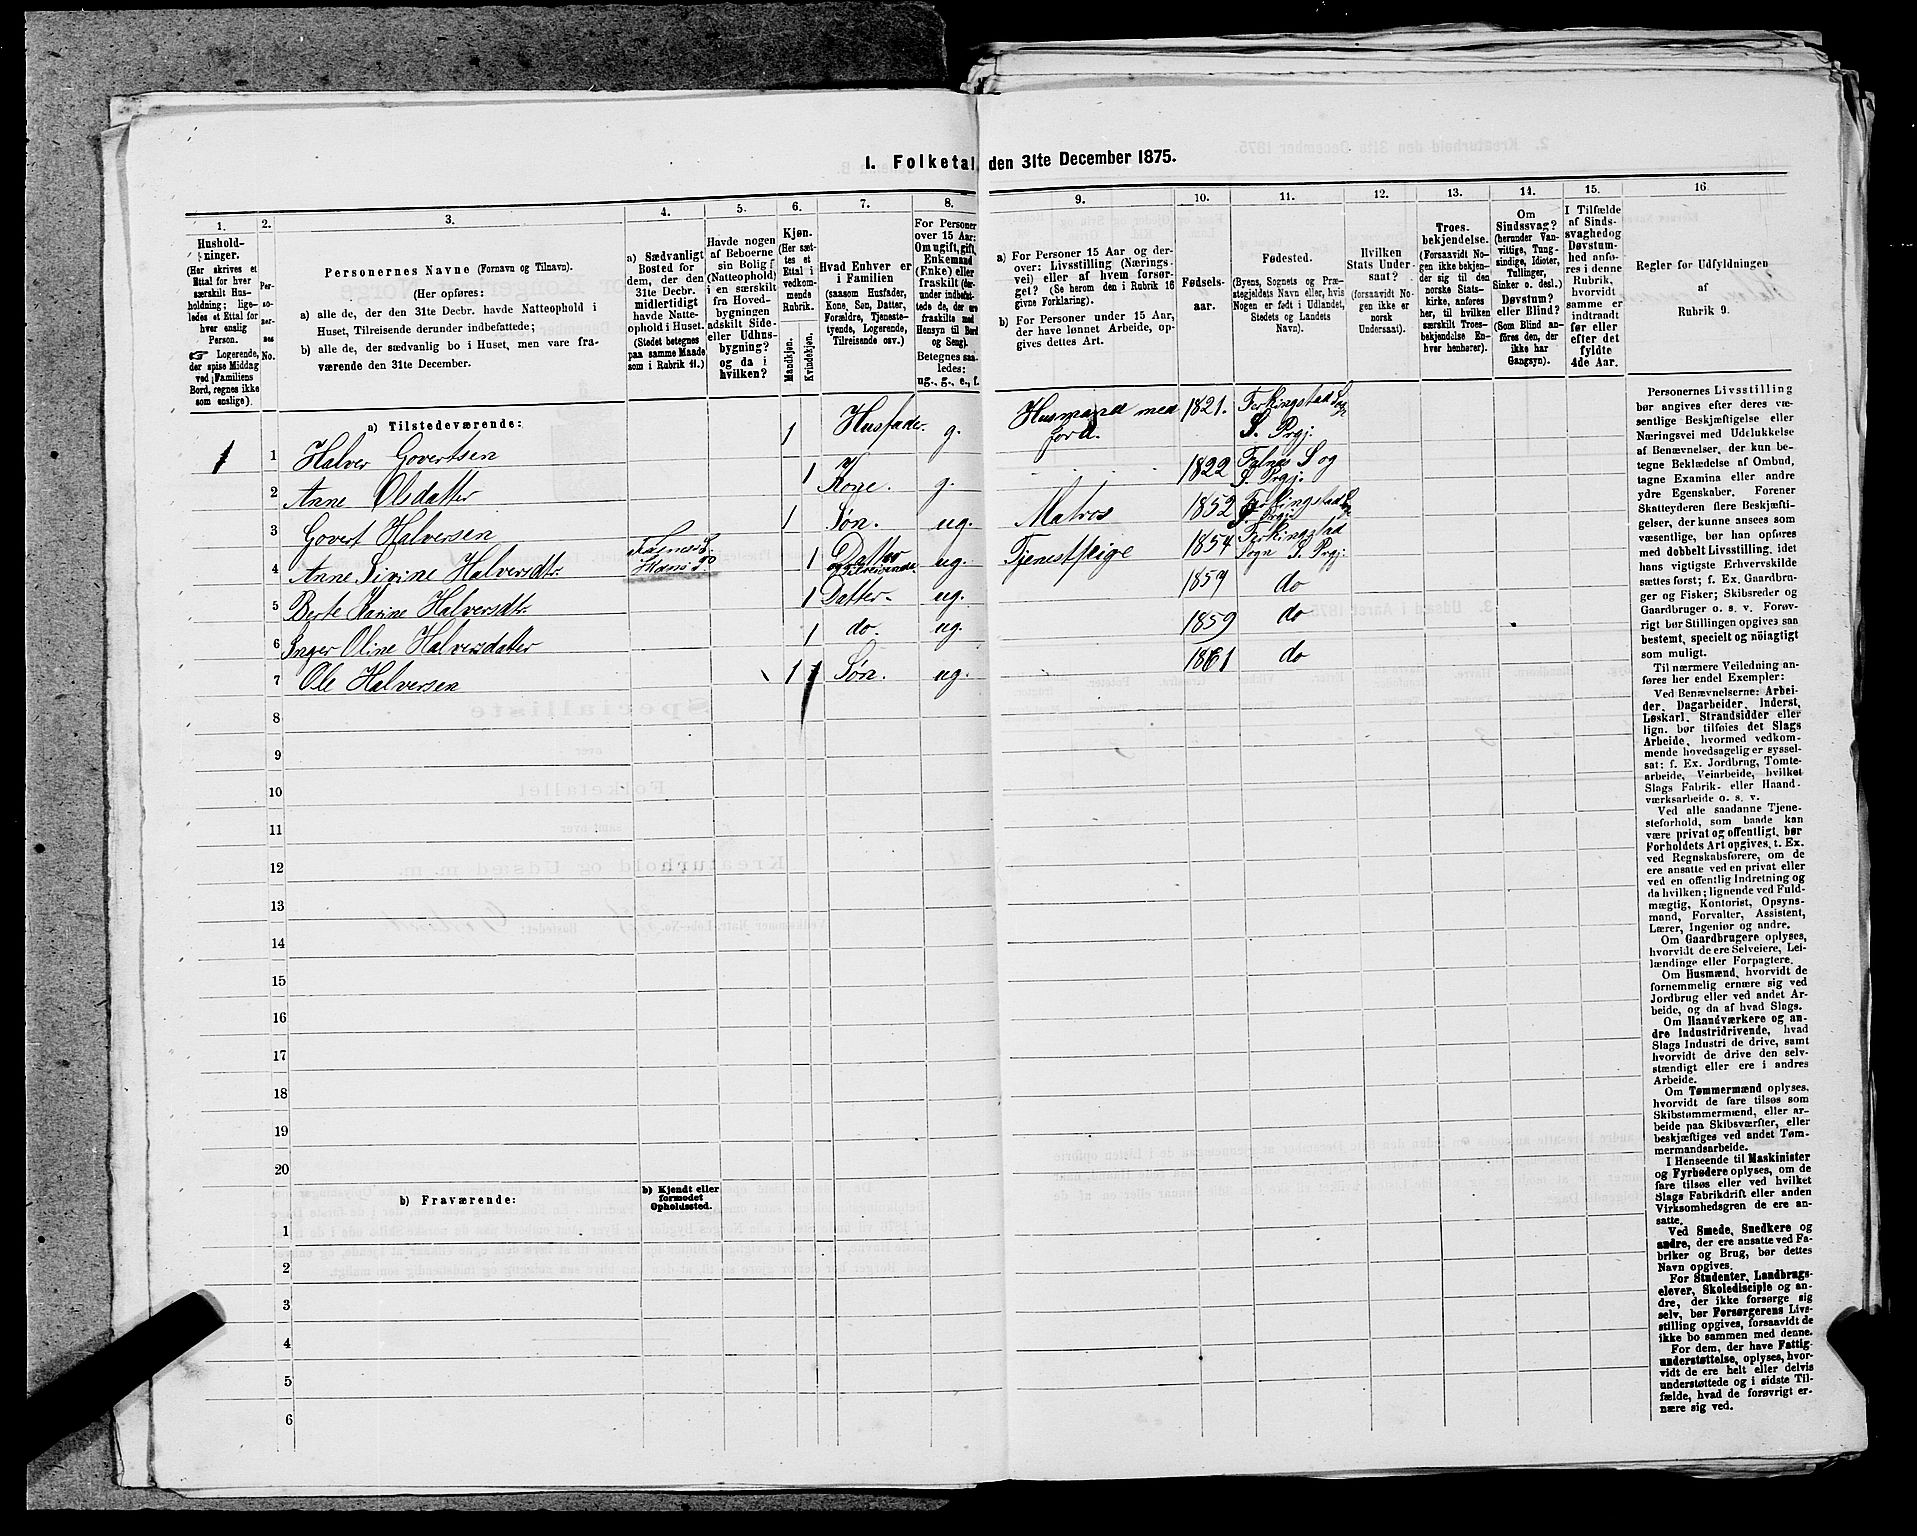 1. Folketal den 31te December 1875.
1. 2. 3. 4. 5. 6. 7. 8. 9. 10. 11. 12. 13. 14. 15. 16
Husholdninger.
(Her skrives et
Ettal for hver
særskilt Husholdning;
ligeledes et Ettal for
hver enslig
Person.
☞ Logerende,
der spise Middag
ved Familiens
Bord, regnes ikke
som enslige).
Personernes No.
Personernes Navne (Fornavn og Tilnavn).
(Her opføres:
a) alle de, der den 31te Decbr. havde Natteophold i
Huset, Tilreisende derunder indbefattede;
b) alle de, der sædvanlig bo i Huset, men vare fraværende
den 31te December.
a) Sædvanligt
Bosted for
dem, der den
31te Decbr.
midlertidigt
havde Natteophold
i Huset.
(Stedet betegnes
paa samme Maade
som i Rubrik 11.)
Havde nogen
af Beboerne
sin Bolig
(Natteophold)
i en særskilt
fra Hovedbygningen
adskilt Side-
eller Udhusbygning?
og da i
hvilken?
Kjøn.
(Her sættes
et
Ettal i
vedkommende
Rubrik.
Mandkjøn.
Kvindekjøn.
Hvad Enhver er
i Familien
(saasom Husfader,
Kone, Søn, Datter,
Forældre, Tjenestetyende,
Logerende,
Tilreisende osv.)
For Personer
over 15 Aar:
Om ugift, gift,
Enkemand
(Enke) eller
fraskilt (derunder
indbefattede
de, der ere
fraskilte med
Hensyn til Bord
og Seng).
Betegnes saaledes:
ug., g., e., f.
a) For Personer 15 Aar og derover:
Livsstilling (Næringsvei)
eller af hvem forsørget?
(Se herom den i Rubrik 16
givne Forklaring).
b) For Personer under 15 Aar,
der have lønnet Arbeide, opgives
dettes Art.
Fødselsaar.
Fødested.
(Byens, Sognets og Præstegjeldets
Navn eller, hvis
Nogen er født i Udlandet,
Stedets og Landets
Navn).
Hvilken
Stats Undersaat?
(forsaavidt Nogen
ikke er
norsk
Undersaat).
Troesbekjendelse.
(Forsaavidt Nogen
ikke bekjender
sig til den
norske Statskirke,
anføres
her, til hvilken
særskilt Troesbekjendelse
Enhver
henhører).
Om
Sindssvag?
(herunder Vanvittige,
Tungsindige,
Idioter,
Tullinger,
Sinker o. desl.)
Døvstum?
eller Blind?
(Som Blind anføres
den, der
ikke har
Gangsyn).
I Tilfælde
af Sindssvaghed
og
Døvstumhed
anføres
i denne
Rubrik,
hvorvidt
samme er
indtraadt
før eller
efter det
fyldte
4de Aar.
Regler for Udfyldningen
af
Rubrik 9.
a) Tilstedeværende:
1 1 Halver Govertsen 1 Husfader. g. Husmand med Jord. 1821. Ferkingstad Sog S. Prgj.
2 Anne Olsdatter 1 Kone. g. 1822 Falnæs S og S. Prgj.
3 Govert Halversen 1 Søn. ug. Matros 1852 Ferkingstad Prgj
4 Anne Sivine Halversdtr. 1 Datter ug. Tjenestpige 1854 Ferkingstad Sogn S. Prgj.
5 Berte Karine Halversdtr. 1 Datter. ug. 1857 do
6 Inger Oline Halversdatter 1 do. ug. 1859 do
7 Ole Halversen 1 Søn. ug. 1861 do
8
9
10
11
12
13
14
15
16
17
18
19
20
b) Fraværende:
b) Kjendt eller
formodet
Opholdssted.
1
2
3
4
5
6
Personernes Livsstilling
bør angives efter deres væsentlige
Beskjæftigelse eller
Næringsvei med Udelukkelse
af Benævnelser, der kun betegne
Beklædelse af Ombud,
tagne Examina eller andre
ydre Egenskaber. Forener
Skatteyderen flere Beskjæftigelser,
der kunne ansees som
væsentlige, bør han opføres
med dobbelt Livsstilling, idet
hans vigtigste Erhvervskilde
sættes først; f. Ex. Gaardbruger
og Fisker; Skibsreder og
Gaardbruger o. s. v. Forøvrigt
bør Stillingen opgives saa
bestemt, specielt og nøiagtigt
som muligt.
Til nærmere Veiledning anføres
her endel Exempler:
Ved Benævnelserne: Arbeider,
Dagarbeider, Inderst,
Løskarl, Strandsidder eller
lign. bør tilføies det Slags
Arbeide, hvormed vedkommende
hovedsagelig er sysselsat;
f. Ex. Jordbrug, Tomtearbeide,
Veiarbeide, hvilket
Slags Fabrik- eller Haandværksarbeide
o. s. v.
Ved alle saadanne Tjenesteforhold,
som baade kan
være privat og offentligt, bør
Forholdets Art opgives, t. Ex.
ved Regnskabsførere, om de
ere ansatte ved en privat eller
ved en offentlig Indretning og
da hvilken; lignende ved Fuldmægtig,
Kontorist, Opsynsmand,
Forvalter, Assistent,
Lærer, Ingeniør og andre.
Om Gaardbrugere oplyses,
hvorvidt de ere Selveiere, Leilændinge
eller Forpagtere.
Om Husmænd, hvorvidt de
fornemmelig ernære sig ved
Jordbrug eller ved andet Arbeide,
og da af hvad Slags.
Om Haandværkere og andre
Industridrivende, hvad
Slags Industri de drive, samt
hvorvidt de drive den selvstændigt
eller ere i andres
Arbeide.
Om Tømmermænd oplyses,
hvorvidt de fare tilsøs som
Skibstømmermænd, eller arbeide
paa Skibsværfter, eller
beskjæftiges ved andet Tømmermandsarbeide.
I Henseende til Maskinister
og Fyrbødere oplyses, om de
fare tilsøs eller ved hvilket
Slags Fabrikdrift eller anden
Virksomhedsgren de ere ansatte.
Ved Smede, Snedkere og
andre, der ere ansatte ved Fabriker
og Brug, bør dettes
Navn opgives.
For Studenter, Landbrugselever,
Skoledisciple og andre,
der ikke forsørge sig
selv, bør Forsørgerens Livsstilling
opgives, forsaavidt de
ikke bo sammen med denne.
For dem, der have Fattigunderstøttelse,
oplyses, hvorvidt
de ere helt eller delvis
understøttede og i sidste Tilfælde,
hvad de forøvrigt ernære
sig ved.